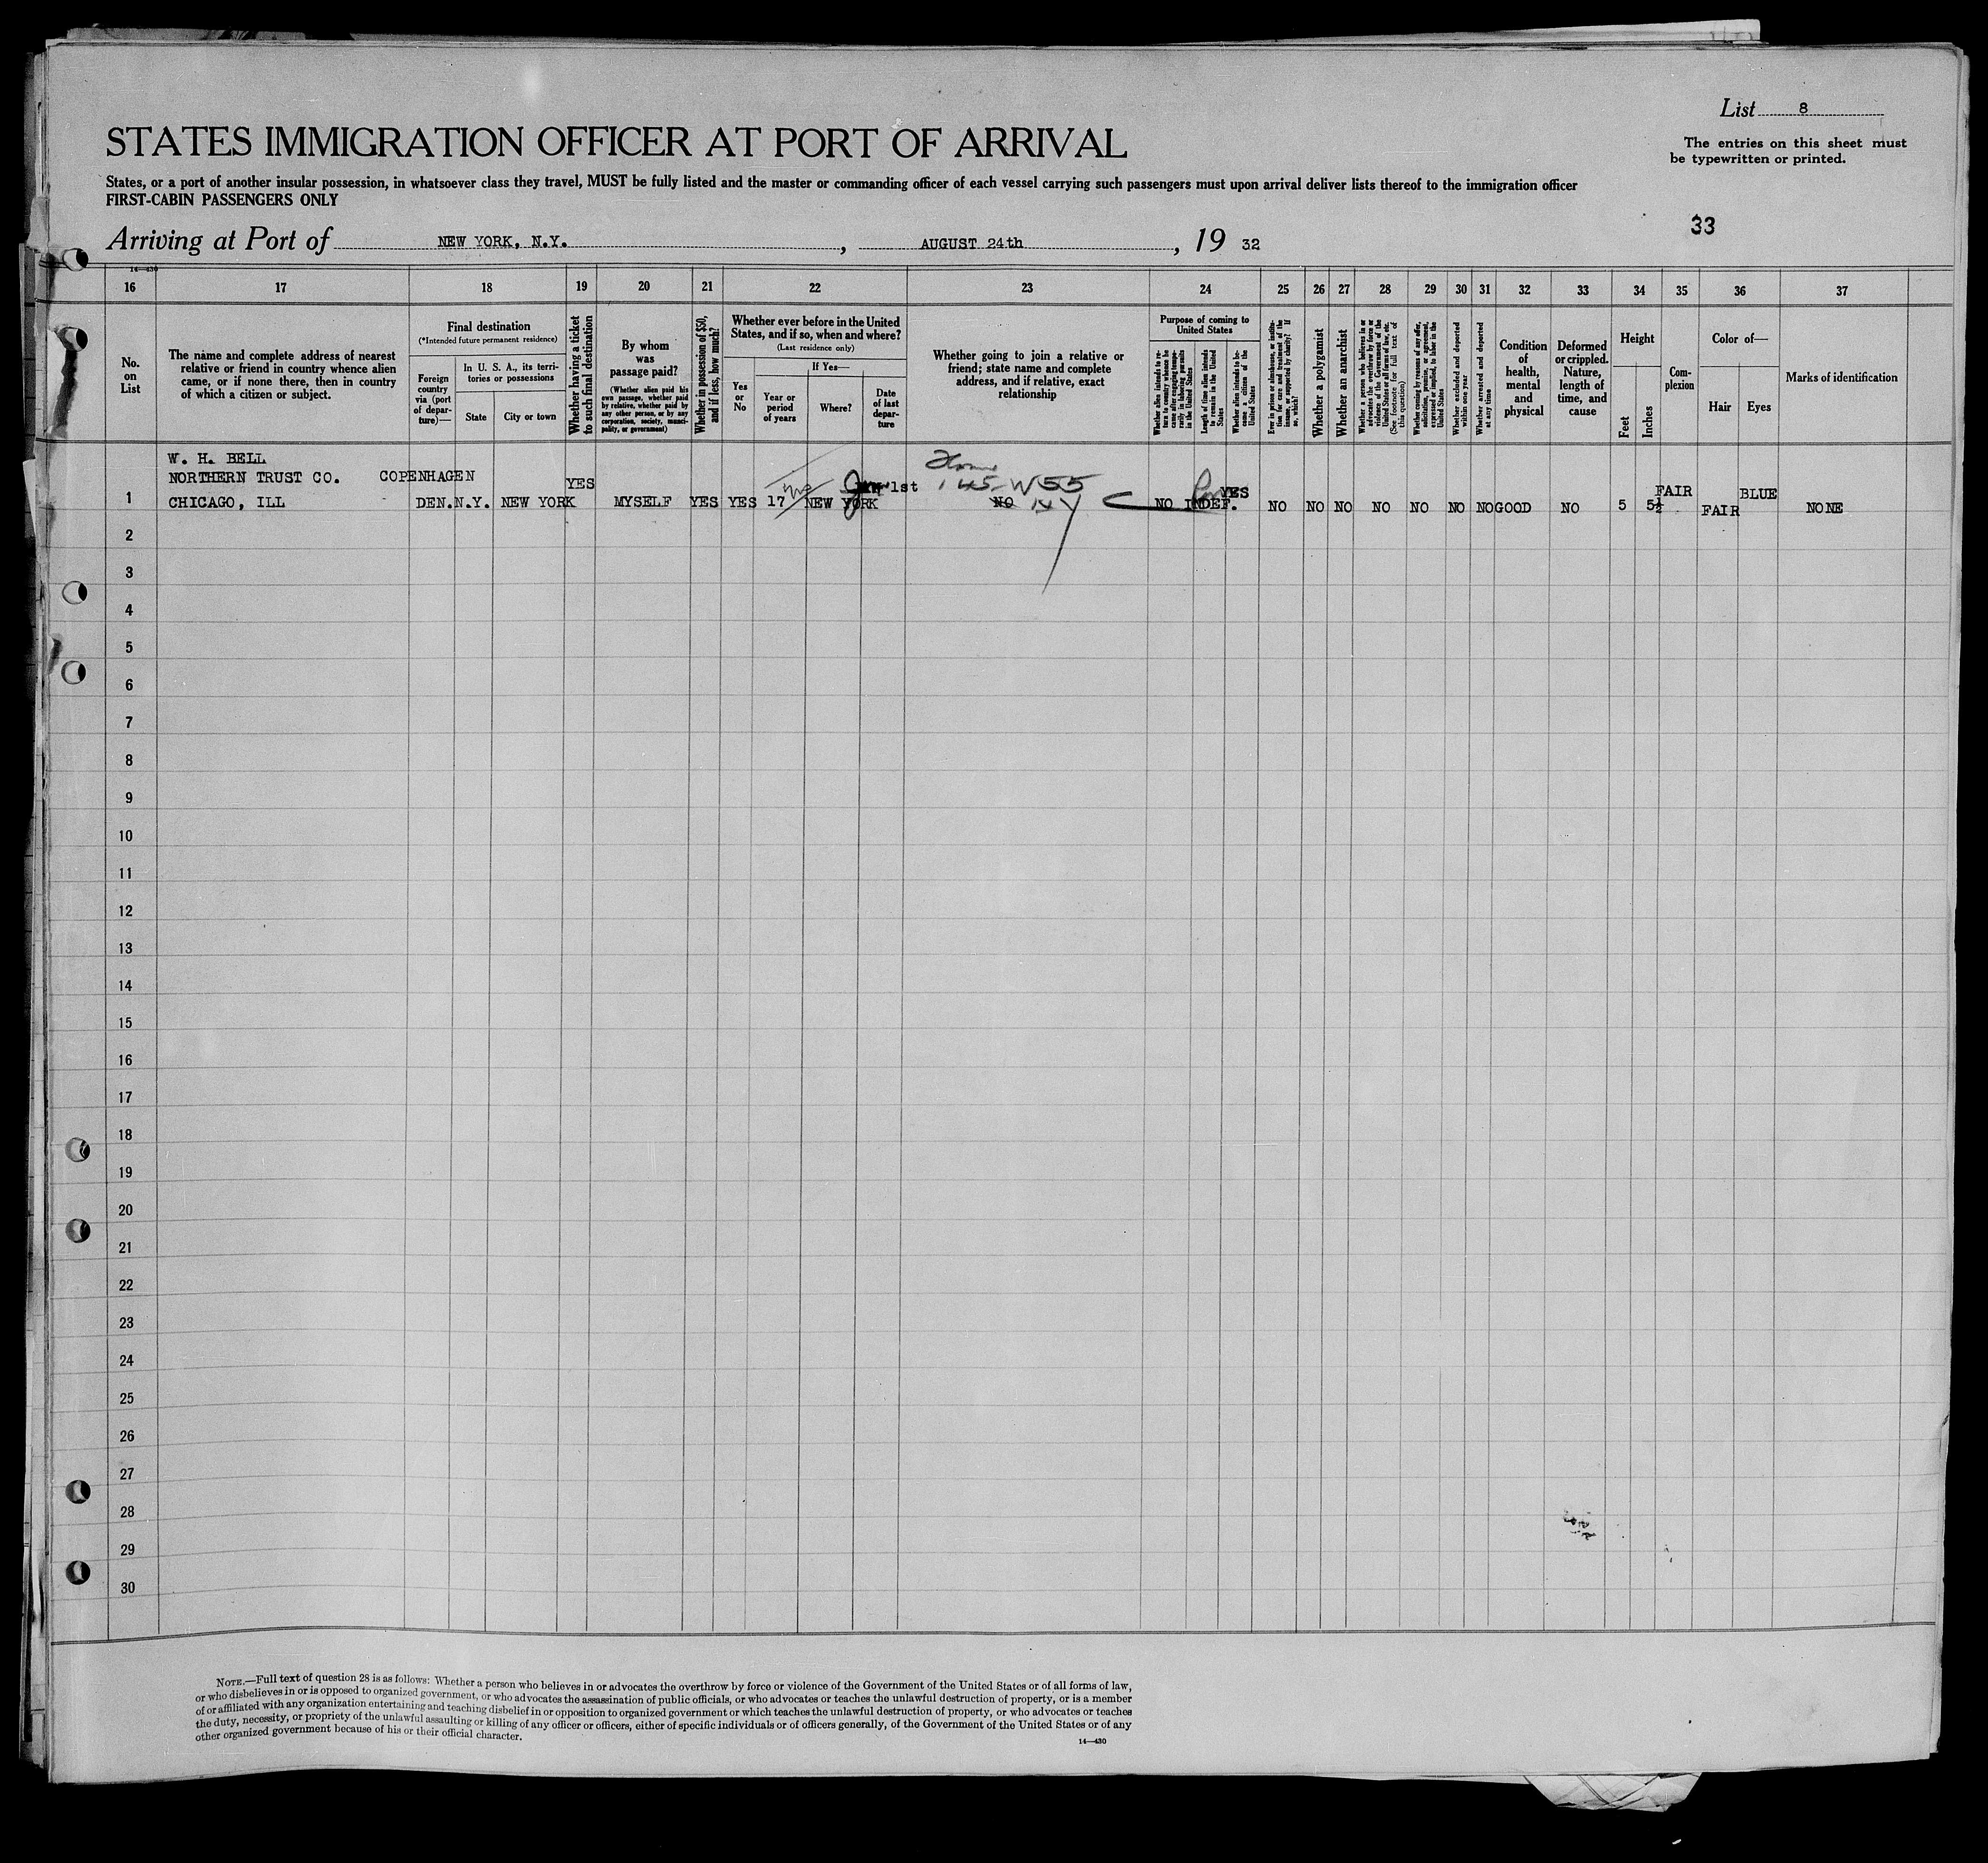 List 8
The entries on this sheet must
be typewritten or printed.
STATES IMMIGRATION OFFICER AT PORT OF ARRIVAL
States, or a port of another insular possession, in whatsoever class they travel, MUST be fully listed and the master or commanding officer of each vessel carrying such passengers must upon arrival deliver lists thereof to the immigration officer
FIRST-CABIN PASSENGERS ONLY
33
Arriving at Port of NEW YORK, N.Y., AUGUST 24th, 19 32
14—430
16 17 18 19 20 21 22 23 24 25 26 27 28 29 30 31 32 33 34 35 36 37
No.
on
List
The name and complete address of nearest
relative or friend in country whence alien
came, or if none there, then in country
of which a citizen or subject.
Final destination
(*Intended future permanent residence)
Foreign
country
via (port
of depar-
ture)—
In U. S. A., its terri-
tories or possessions
State
City or town
Whether having a ticket
to such final destination
By whom
was
passage paid?
(Whether alien paid his
own passage, whether paid
by relative, whether paid by
any other person, or by any
corporation, society, munici-
pality, or government)
Whether in possession of $50,
and if less, how much?
Whether ever before in the United
States, and if so, when and where?
(Last residence only)
Yes
or
No
If Yes—
Year or
period
of years
Where?
Date
of last
depar-
ture
Whether going to join a relative or
friend; state name and complete
address, and if relative, exact
relationship
Purpose of coming to
United States
Whether alien intends to re-
turn to country whence he
came after engaging tempo-
rarily in laboring pursuits
in the United States
Length of time alien intends
to remain in the United
States
Whether alien intends to be-
come a citizen of the
United States
Ever in prison or almshouse, or institu-
tion for care and treatment of the
insane, or supported by charity? If
so, which?
Whether a polygamist
Whether an anarchist
Whether a person who believes in or
advocates the overthrow by force or
violence of the Government of the
United States or all forms of law, etc.
(See footnote for full text of
this question)
Whether coming by reasons of any offer,
solicitation, promise, or agreement,
expressed or implied, to labor in the
United States
Whether excluded and deported
within one year
Whether arrested and deported
at any time
Condition
of
health,
mental
and
physical
Deformed
or crippled.
Nature,
length of
time, and
cause
Height
Feet
Inches
Com-
plexion
Color of—
Hair
Eyes
Marks of identification
W. H. BELL
NORTHERN TRUST CO. COPENHAGEN YES 1st 145-W 55 YES FAIR BLUE
1 CHICAGO, ILL DEN. N.Y. NEW YORK MYSELF YES YES 17 NEW YORK NO NY NO INDEF. NO NO NO NO NO NO NO GOOD NO 5 5½ FAIR NONE
2
3
4
5
6
7
8
9
10
11
12
13
14
15
16
17
18
19
20
21
22
23
24
25
26
27
28
29
30
NOTE.—Full text of question 28 is as follows: Whether a person who believes in or advocates the overthrow by force or violence of the Government of the United States or of all forms of law,
or who disbelieves in or is opposed to organized government, or who advocates the assassination of public officials, or who advocates or teaches the unlawful destruction of property, or is a member
of or affiliated with any organization entertaining and teaching disbelief in or opposition to organized government or which teaches the unlawful destruction of property, or who advocates or teaches
the duty, necessity, or propriety of the unlawful assaulting or killing of any officer or officers, either of specific individuals or of officers generally, of the Government of the United States or of any
other organized government because of his or their official character.
14—430